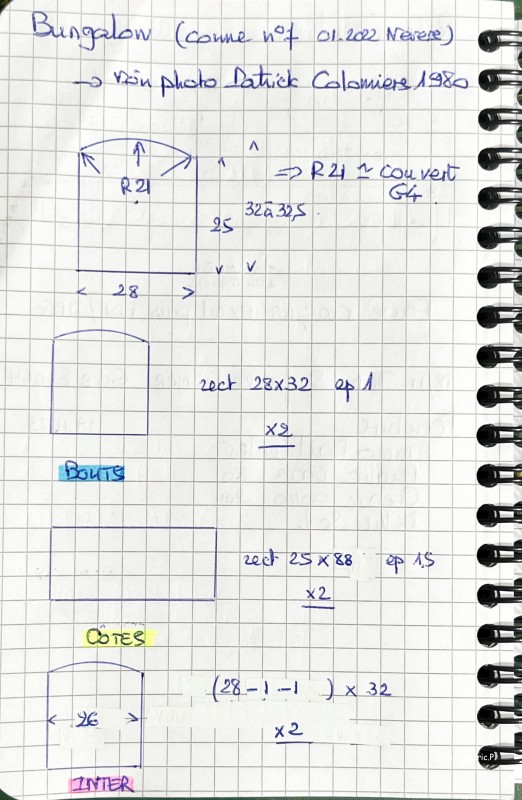 Bungalow (comme n°1 01.2022 Nevese)
→ voir photo Patrick Colomiers 1980
R21
⇒ R21 ≃ couvert
G4
25
32 à 32,5
28
rect 28x32 ep 1
x2
BOUTS
rect 25 x 88 ep 1,5
x2
CÔTES
(28-1-1 ) x 32
26
x2
INTER